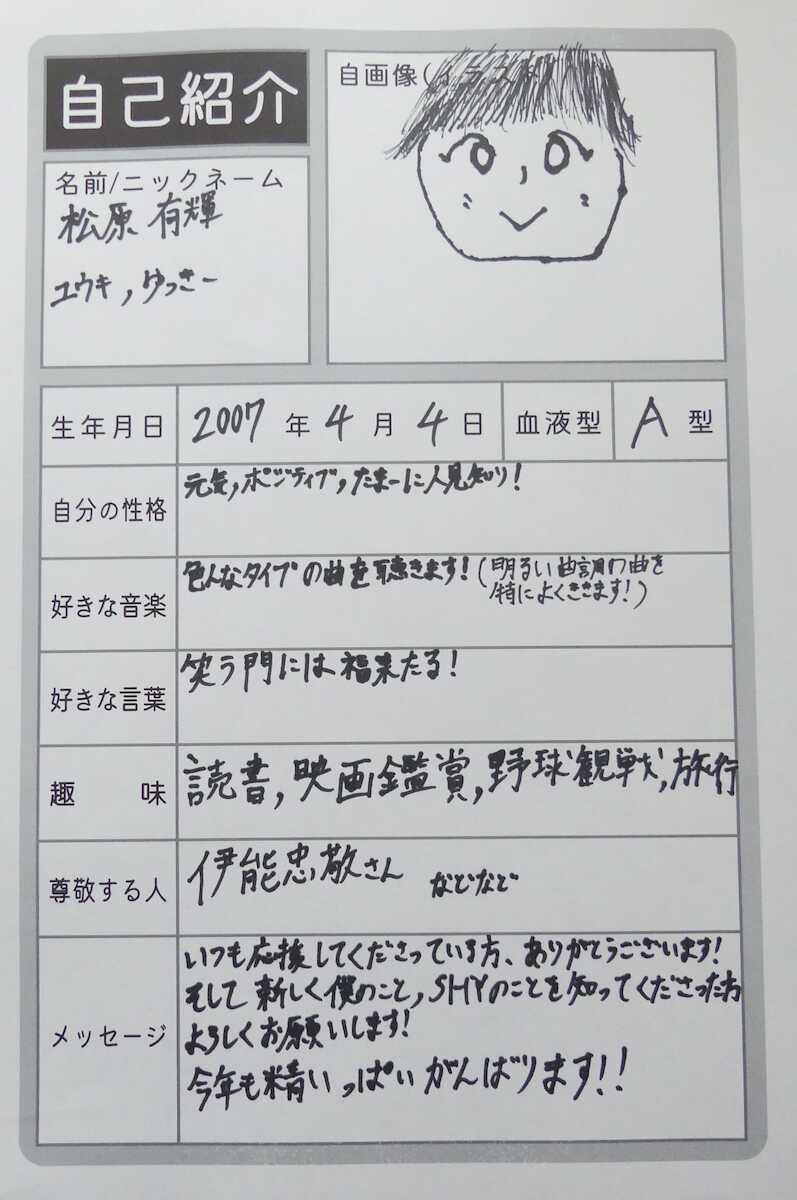 自己紹介
自画像(イラスト)
名前/ニックネーム
松原 有輝
ユウキ,ゆっきー
生年月日 2007年4月4日 血液型 A型
自分の性格 元気,ポジティブ,たまーに人見知り!
好きな音楽 色んなタイプの曲を聴きます!(明るい曲調の曲を
特によくききます!)
好きな言葉 笑う門には福来たる!
趣味 読書,映画鑑賞,野球観戦,旅行
尊敬する人 伊能忠敬さん などなど
メッセージ
いつも応援してくださっている方、ありがとうございます!
そして新しく僕のこと,SHYのことを知ってくださった方
よろしくお願いします!
今年も精いっぱいがんばります!!